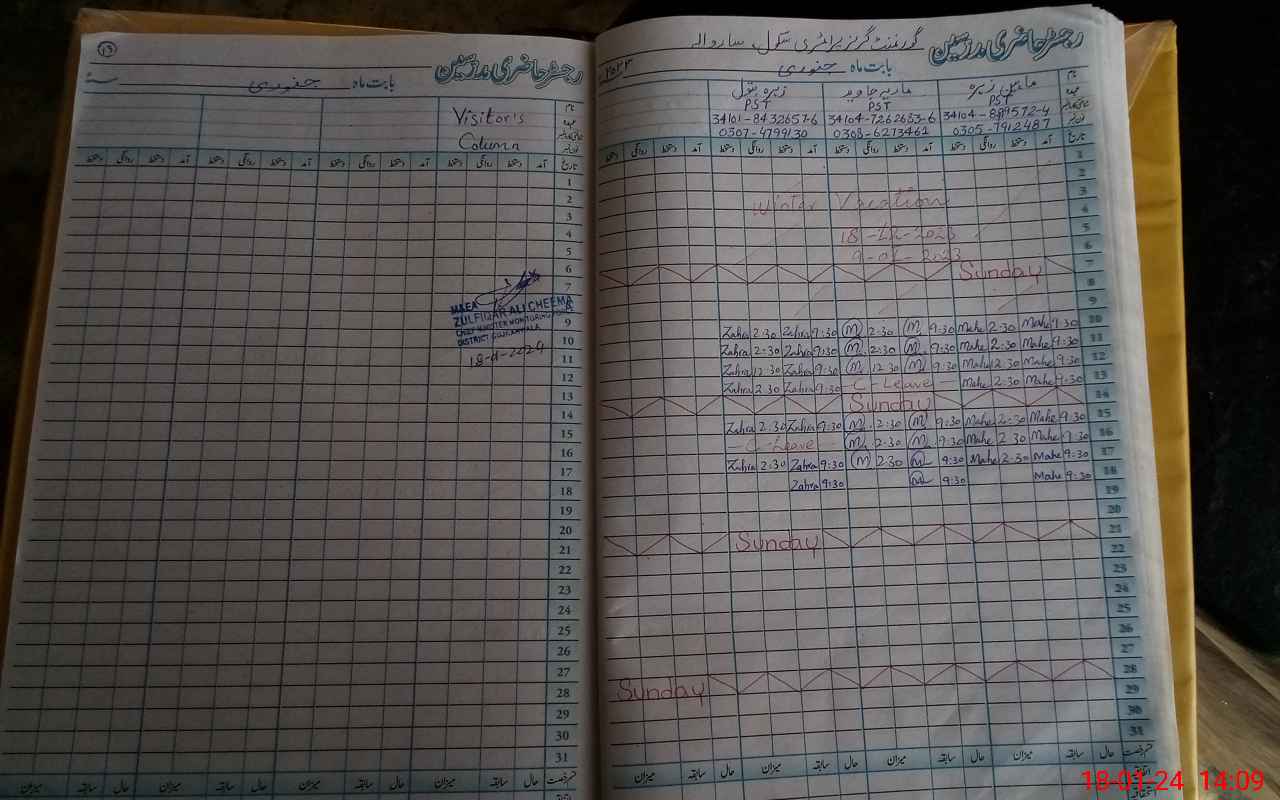 رجسٹر حاضری مدرسین
گورنمنٹ گرلز پرائمری سکول، ساروالہ
بابت ماہ جنوری
نام
عہدہ
PST
PST
زہرہ بتول
PST
34104-7262653-6
34101-8432657-6
0305-7912487
0308-6273461
0307-4799130
تاریخ
آمد دستخط روانگی دستخط آمد دستخط روانگی دستخط آمد دستخط روانگی دستخط آمد دستخط روانگی دستخط
1
2
3
Winter Vacation
4
5
6
7 Sunday
8
9
10 Zahra 2:30 Zahra 9:30 M 2:30 M 9:30 Mahe 2:30 Mahe 9:30
11 Zahra 2:30 Zahra 9:30 M 2:30 M 9:30 Mahe 2:30 Mahe 9:30
12 Zahra 12:30 Zahra 9:30 M 12:30 M 9:30 Mahe 12:30 Mahe 9:30
13 Zahra 2:30 Zahra 9:30 C-Leave Mahe 2:30 Mahe 9:30
14 Sunday
15 Zahra 2:30 Zahra 9:30 M 2:30 M 9:30 Mahe 2:30 Mahe 9:30
16 C-Leave M 2:30 M 9:30 Mahe 2:30 Mahe 9:30
17 Zahra 2:30 Zahra 9:30 M 2:30 M 9:30 Mahe 2:30 Mahe 9:30
18 Zahra 9:30 M 9:30 Mahe 9:30
19
20
21 Sunday
22
23
24
25
26
27
28 Sunday
29
30
31
قسم رخصت
حال سابقہ میزان حال سابقہ میزان حال سابقہ میزان حال سابقہ میزان
13
رجسٹر حاضری مدرسین
بابت ماہ جنوری
نام
عہدہ
Visitor's
Column
تاریخ
آمد دستخط روانگی دستخط آمد دستخط روانگی دستخط آمد دستخط روانگی دستخط آمد دستخط روانگی دستخط
1
2
3
4
5
6
7
8
9
10
11
12
13
14
15
16
17
18
19
20
21
22
23
24
25
26
27
28
29
30
31
MAEA
ZULFIQAR ALI CHEEMA
CHIEF MINISTER MONITORING FORCE
DISTRICT GUJRANWALA
18-01-2024
قسم رخصت
حال سابقہ میزان حال سابقہ میزان حال سابقہ میزان حال سابقہ میزان
18-01-24 14:09